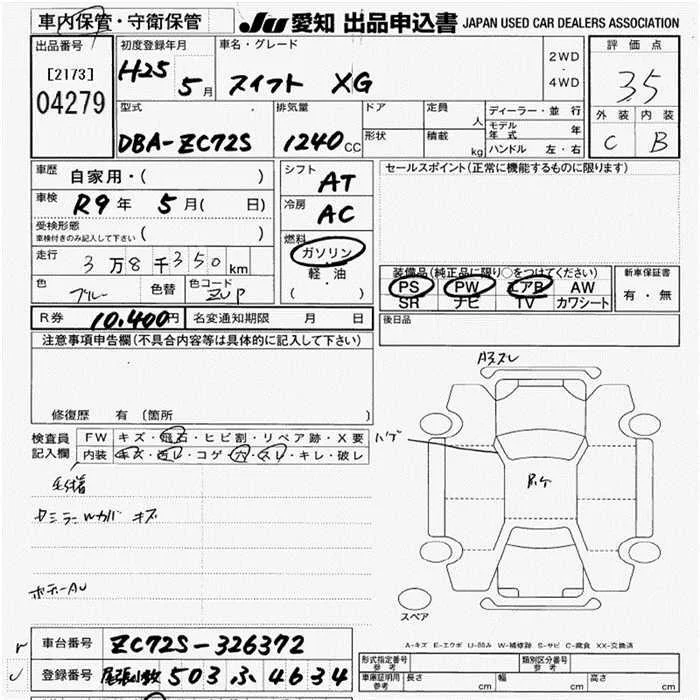 車内保管・守衛保管 JU 愛知 出品申込書 JAPAN USED CAR DEALERS ASSOCIATION
出品番号
[2173]
04279
初度登録年月
H25 5月
車名・グレード
スイフト XG
2WD
・
4WD
評価点
35
外装 内装
C B
型式
DBA-ZC72S
排気量
1240cc
ドア
形状
定員
人
積載
kg
ディーラー・並行
モデル年式 年
ハンドル 左・右
車歴
自家用・( )
車検
R9年 5月( 日)
受検形態
車検付きのみ記入して下さい ( )
走行
3万8千350km
色
ブルー
色替
色コード
ZUP
シフト
AT
冷房
AC
燃料
ガソリン
・
軽油
( )
セールスポイント(正常に機能するものに限ります)
装備品(純正品に限り○をつけてください)
PS PW エアB AW
SR ナビ TV カワシート
新車保証書
有・無
R券 10.400円 名変通知期限 月 日
後日品
注意事項申告欄(不具合内容等は具体的に記入して下さい)
修復歴 有 (箇所 )
検査員記入欄
FW キズ・飛石・ヒビ割・リペア跡・X要
内装 キズ・ヨゴレ・コゲ・穴・スレ・キレ・破レ
ハゲ
A3スレ
ミラーWカバ キズ
ボデーAU
スペア
A-キズ E-エクボ U-凹み W-補修跡 S-サビ C-腐食 XX-交換済
車台番号 ZC72S-326372
登録番号 尾張小牧 503 ふ 4634
形式指定番号
参考
類別区分番号
参考
車庫証明用
参考
長さ cm 幅 cm 高さ cm